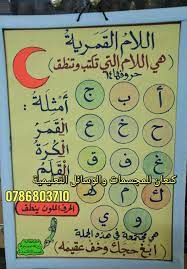 اللام القمرية
(هي اللام التي تكتب وتنطق)
حروفها ١٤
أ ب ج
أمثلة:
القمر
الكرة
القلم
ع غ ف
ق ك م
كنعان للمجسمات والوسائل التعليمية
0786803710
و ي
هي مجتمعة في هذه الجملة
(ابغ حجك وخف عقيمه)